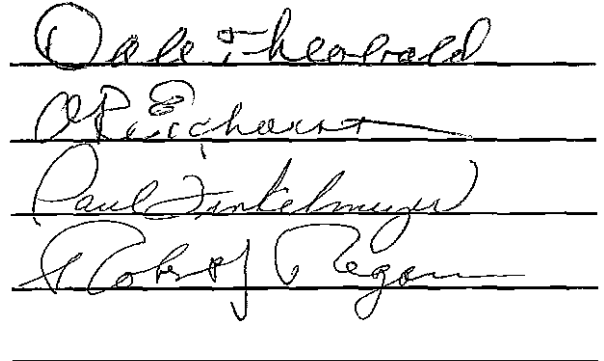 Dale Theobald
Paul Finkelmeyer
Robert J Regan